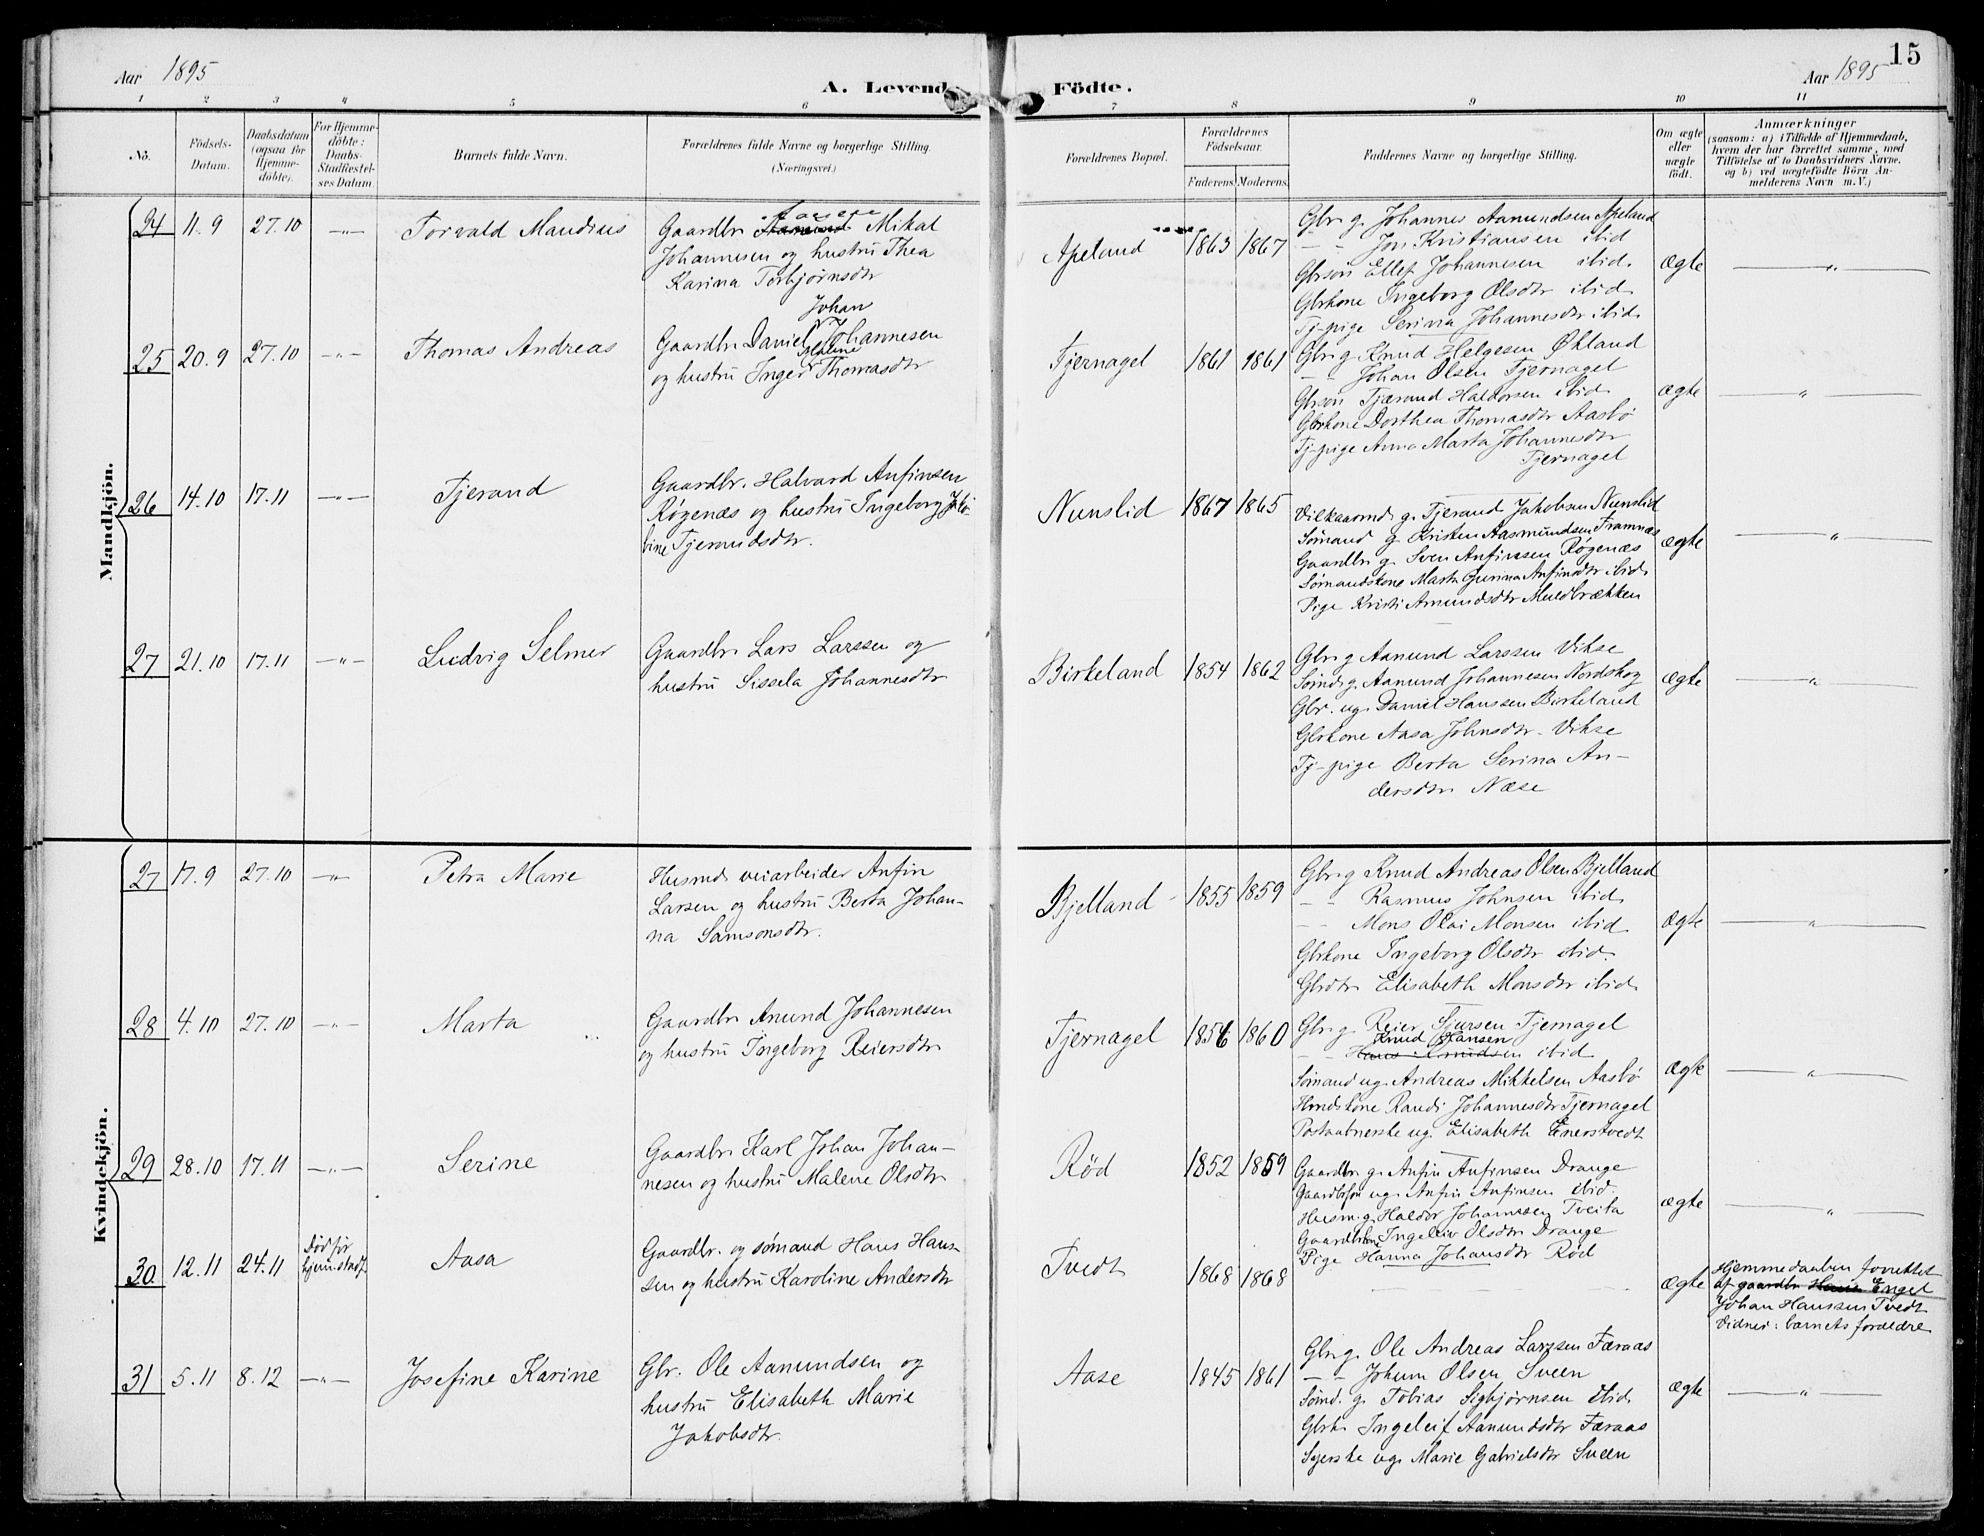 Aar 1895
A. Levende Födte.
15
Aar 1895
1 2 3 4 5 6 7 8 9 10 11
No.
Födsels-
Datum.
Daabsdatum
(ogsaa for
Hjemme-
döbte).
For Hjemme-
döbte:
Daabs-
Stadfæstel-
ses Datum.
Barnets fulde Navn.
Forældrenes fulde Navne og borgerlige Stilling.
(Næringsvei.)
Forældrenes Bopæl.
Forældrenes
Födselsaar.
Faderens. Moderens.
Faddernes Navne og borgerlige Stilling.
Om ægte
eller
uægte
födt.
Anmærkninger
(saasom: a) i Tilfælde af Hjemmedaab,
hvem der har forrettet samme, med
Tilföielse af to Daabsvidners Navne.
og b) ved uægtefödte Börn An-
melderens Navn m. V.)
Mandkjön.
24 11.9 27.10 —"— Torvald Mandius
Gaardbr. Mikal
Johannesen og hustru Thea
Karina Torbjørnsdtr
Apeland 1863 1867
Gbr g. Johannes Aamundsen Apeland
- - Jon Kristiansen ibid
Gbrsøn Ellef Johannesen ibid.
Gbrkone Ingeborg Olsdtr ibid.
Tj-pige Serina Johannesdtr ibid.
Ægte —"—
25 20.9 27.10 —"— Thomas Andreas
Johan
Gaardbr. Daniel Johannesen
Malene
og hustru Inger Thomasdtr
Tjernagel 1861 1861
Gbr. g. Knud Helgesen Økland
- - Johan Olsen Tjernagel
Gbrsøn Tjærand Haldorsen ibid.
Gbrkone Dorthea Thomasdtr Aasbø
Tj-pige Anna Marta Johannesdtr
Tjernagel
Ægte —"—
26 14.10 17.11 —"— Tjerand
Gaardbr. Halvard Anfinsen
Røgenæs og hustru Ingeborg Jako-
bine Tjerandsdtr.
Nunslid 1867 1865
Vilkaarmd g. Tjerand Jakobsen Nunslid
Sømand g. Kristen Aasmundsen Framnæs
Gaardbr g. Sven Anfinsen Røgenæs
Sømandskone Marta Gurina Anfinsdtr ibid.
Pige Kristi Amundsdtr Muldbrækken
Ægte —"—
27 21.10 17.11 —"— Ludvig Selmer
Gaardbr. Lars Larssen og
hustru Sissela Johannesdtr
Birkeland 1854 1862
Gbr. g Aamund Larssen Vikse
Sømd g. Aamund Johannesen Nordskog
Gbr. ug. Daniel Hanssen Birkeland
Gbrkone Aasa Johnsdtr. Vikse
Tj-pige Berta Serina An-
dersdtr. Næse
Ægte —"—
Kvindekjön.
27 17.9 27.10 —"— Petra Marie
Husmd. veiarbeider Anfin
Larsen og hustru Berta Johan-
na Samsonsdtr.
Bjelland 1855 1859
Gbr. g Knud Andreas Olsen Bjelland
- - Rasmus Johnsen ibid.
- - Mons Olai Monsen ibid.
Gbrkone Ingeborg Olsdtr ibid.
Gbrdtr Elisabeth Monsdtr ibid.
Ægte —"—
28 4.10 27.10 —"— Marta
Gaardbr. Anund Johannesen
og hustru Ingeborg Reiersdtr
Tjernagel 1856 1860
Gbr. g. Reier Sjursen Tjernagel
Knud Hansen
- - Hans Knudsen ibid.
Sømand ug. Andreas Mikkelsen Aasbø
Hmdskone Randi Johannesdtr Tjernagel
Postaabnerske ug. Elisabeth Enerstvedt
Ægte —"—
29 28.10 17.11 —"— Serine
Gaardbr. Karl Johan Johan-
nesen og hustru Malene Olsdtr
Rød 1852 1859
Gaardbr. g. Anfin Anfinsen Drange
Gaardbrsøn ug. Anfin Anfinsen ibid.
Husm. g. Haldor Johannesen Tveita
Gaardbrkone Ingeleiv Olsdtr Drange
Pige Hanna Johansdtr Rød
Ægte —"—
30 12.11 24.11 Død før
hjem.stadf.
Aasa
Gaardbr. og sømand Hans Hans-
sen og hustru Karoline Andersdtr
Tvedt 1868 1868
Ægte
Hjemmedaaben forrettet
af gaardbr Hans Engel
Johan Hanssen Tvedt
Vidner: barnets forældre
31 5.11 8.12 —"— Josefine Karine
Gbr. Ole Aamundsen og
hustru Elisabeth Marie
Jakobsdtr.
Aase 1845 1861
Gbr. g. Ole Andreas Larssen Færaas
- - Johan Olsen Sveen
Sømd. g. Tobias Sigbjørnsen ibid.
Gbrk. Ingeleif Aamundsdtr Færaas
Syerske ug. Marie Gabrielsdtr Sveen
Ægte —"—